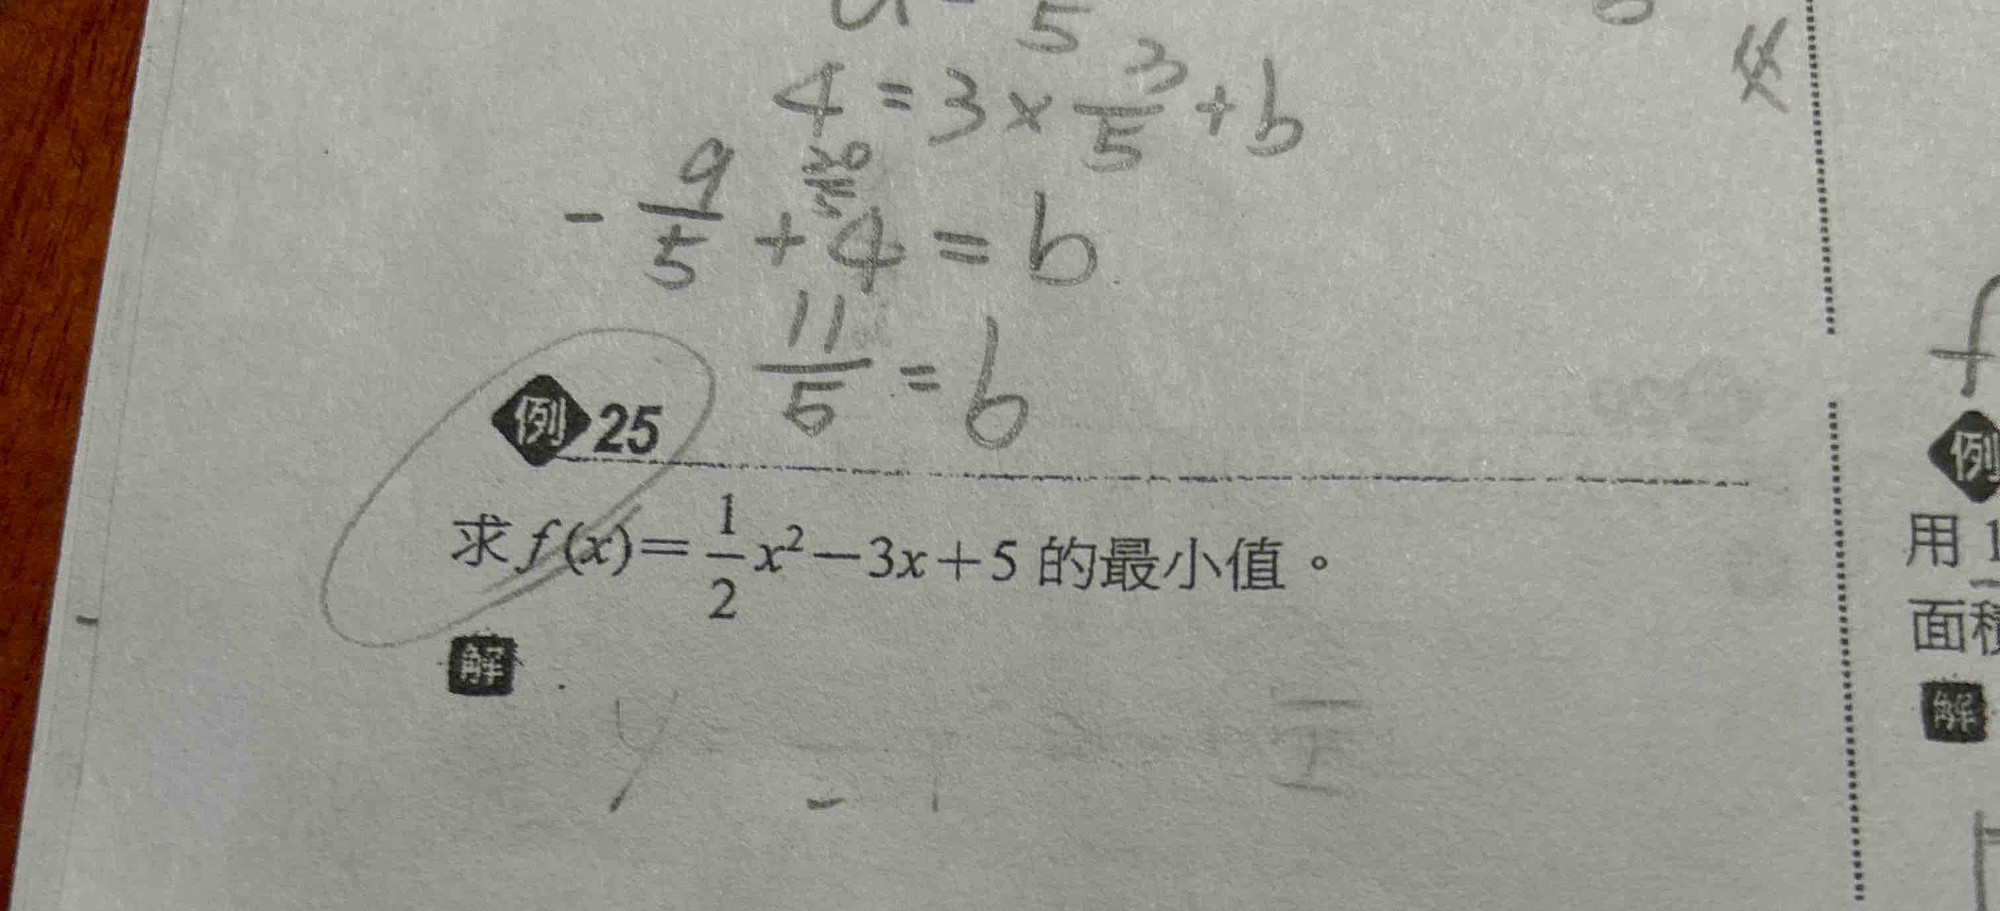 4 = 3 × 3/5 + b
- 9/5 + 4 = b
20/5
11/5 = b
例 25
求 f(x) = 1/2 x² − 3x + 5 的最小值。
解
例
用 1
面積
解